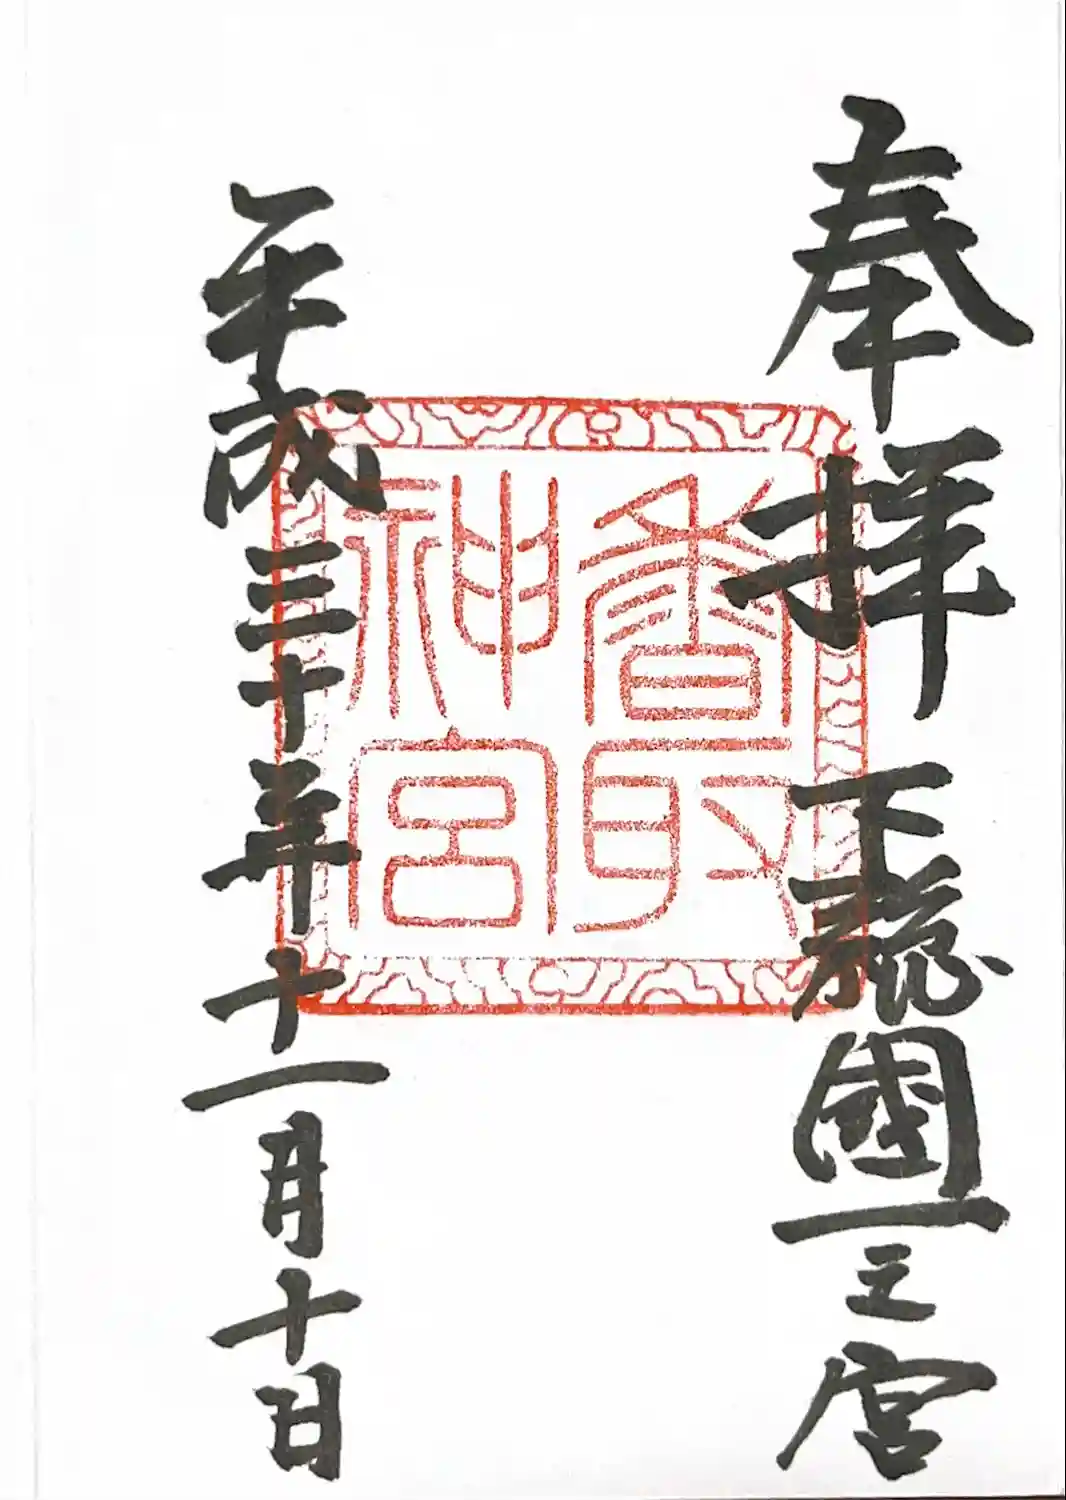 奉拝 下総國一之宮
香取
神宮
平成三十年十一月十日